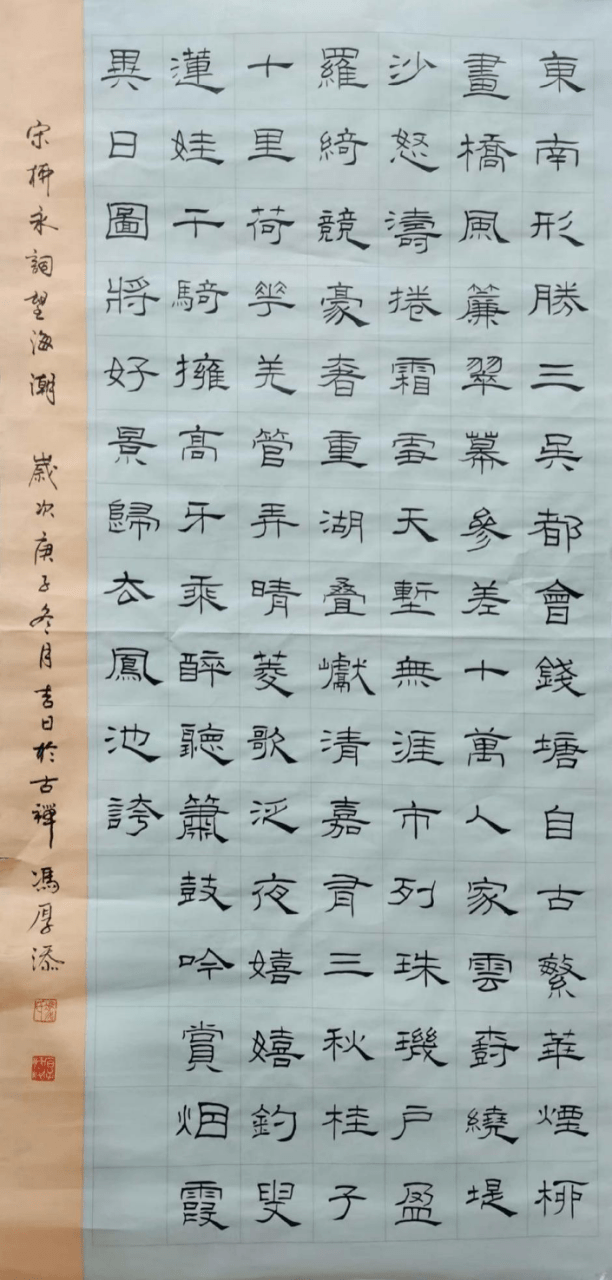 東南形勝三吳都會錢塘自古繁華煙柳
畫橋風簾翠幕參差十萬人家雲樹繞堤
沙怒濤捲霜雪天塹無涯市列珠璣戶盈
羅綺競豪奢重湖叠巘清嘉有三秋桂子
十里荷花羌管弄晴菱歌泛夜嬉嬉釣叟
蓮娃千騎擁高牙乘醉聽簫鼓吟賞烟霞
異日圖將好景歸去鳳池誇
宋柳永詞望海潮 歲次庚子冬月吉日於古禪 馮厚添